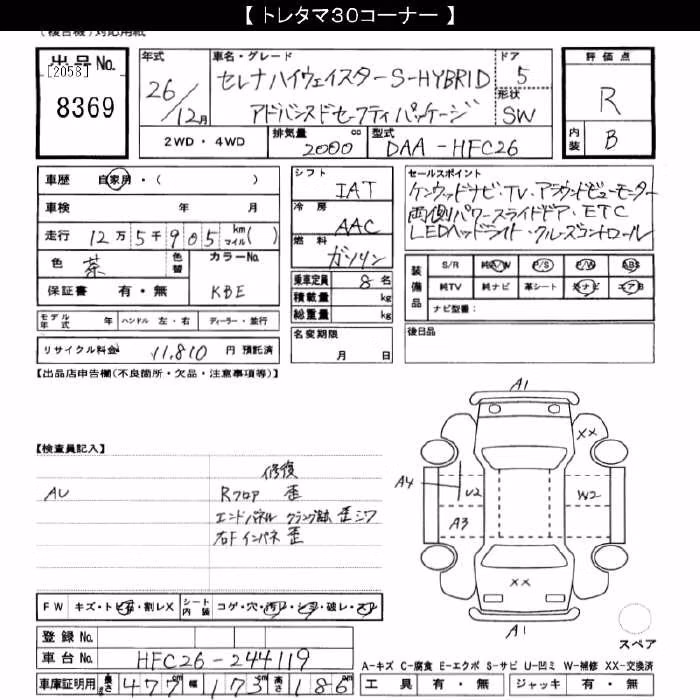 【 トレタマ30コーナー 】
(複合機)対応用紙
出品No.
[2058]
8369
年式
26/12月
車名・グレード
セレナハイウェイスターS-HYBRID
アドバンスドセーフティパッケージ
ドア
5
形状
SW
2WD・4WD
排気量
2000 cc
型式
DAA-HFC26
評価点
R
内装
B
車歴 自家用・( )
車検 年 月
走行 12万5千905 km マイル( )
色 茶 色替 カラーNo. KBE
保証書 有・無
モデル年式 年 ハンドル 左・右 ディーラー・並行
リサイクル料金 11,810 円 預託済
シフト
IAT
冷房
AAC
燃料
ガソリン
乗車定員 8 名
積載量 kg
総重量 kg
名変期限
月 日
セールスポイント
ケンウッドナビ・TV・アラウンドビューモーター
両側パワースライドドア・ETC
LEDヘッドライト・クルーズコントロール
装備品
S/R 純A/W P/S P/W ABS
純TV 純ナビ 革シート 社ナビ エアB
ナビ型番:
後日品
【出品店申告欄(不良箇所・欠品・注意事項等)】
【検査員記入】
AU
修復
Rフロア 歪
エンドパネル クランク跡 歪シワ
右Fインパネ 歪
A1
XX
A4
U2
W2
A3
XX
A1
スペア
FW キズ・トビ石・割レX シート内装 コゲ・穴・汚レ・シミ・破レ・スレ
登録No.
車台No. HFC26-244119
車庫証明用 長さ 477 cm 幅 173 cm 高さ 186 cm
A-キズ C-腐食 E-エクボ S-サビ U-凹ミ W-補修 XX-交換済
工具 有・無 ジャッキ 有・無